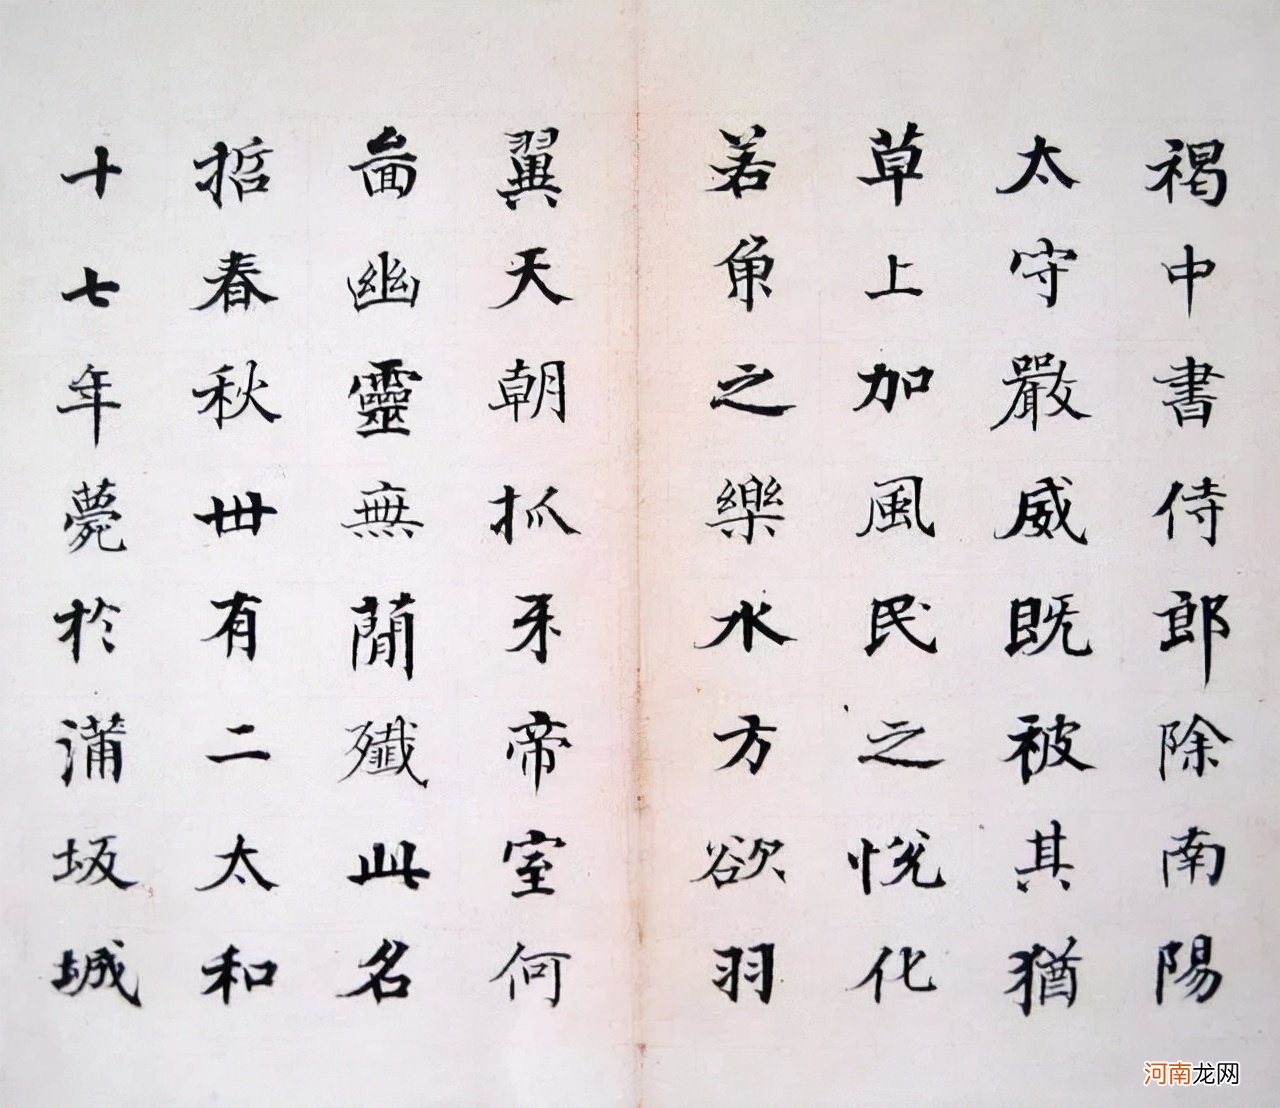 褐中書侍郎除南陽
太守嚴威既被其猶
草上加風民之悅化
若魚之樂水方欲羽
翼天朝抓牙帝室何
啚幽靈無蕳殲此名
哲春秋卌有二太和
十七年薨於蒲坂城
河南龙网